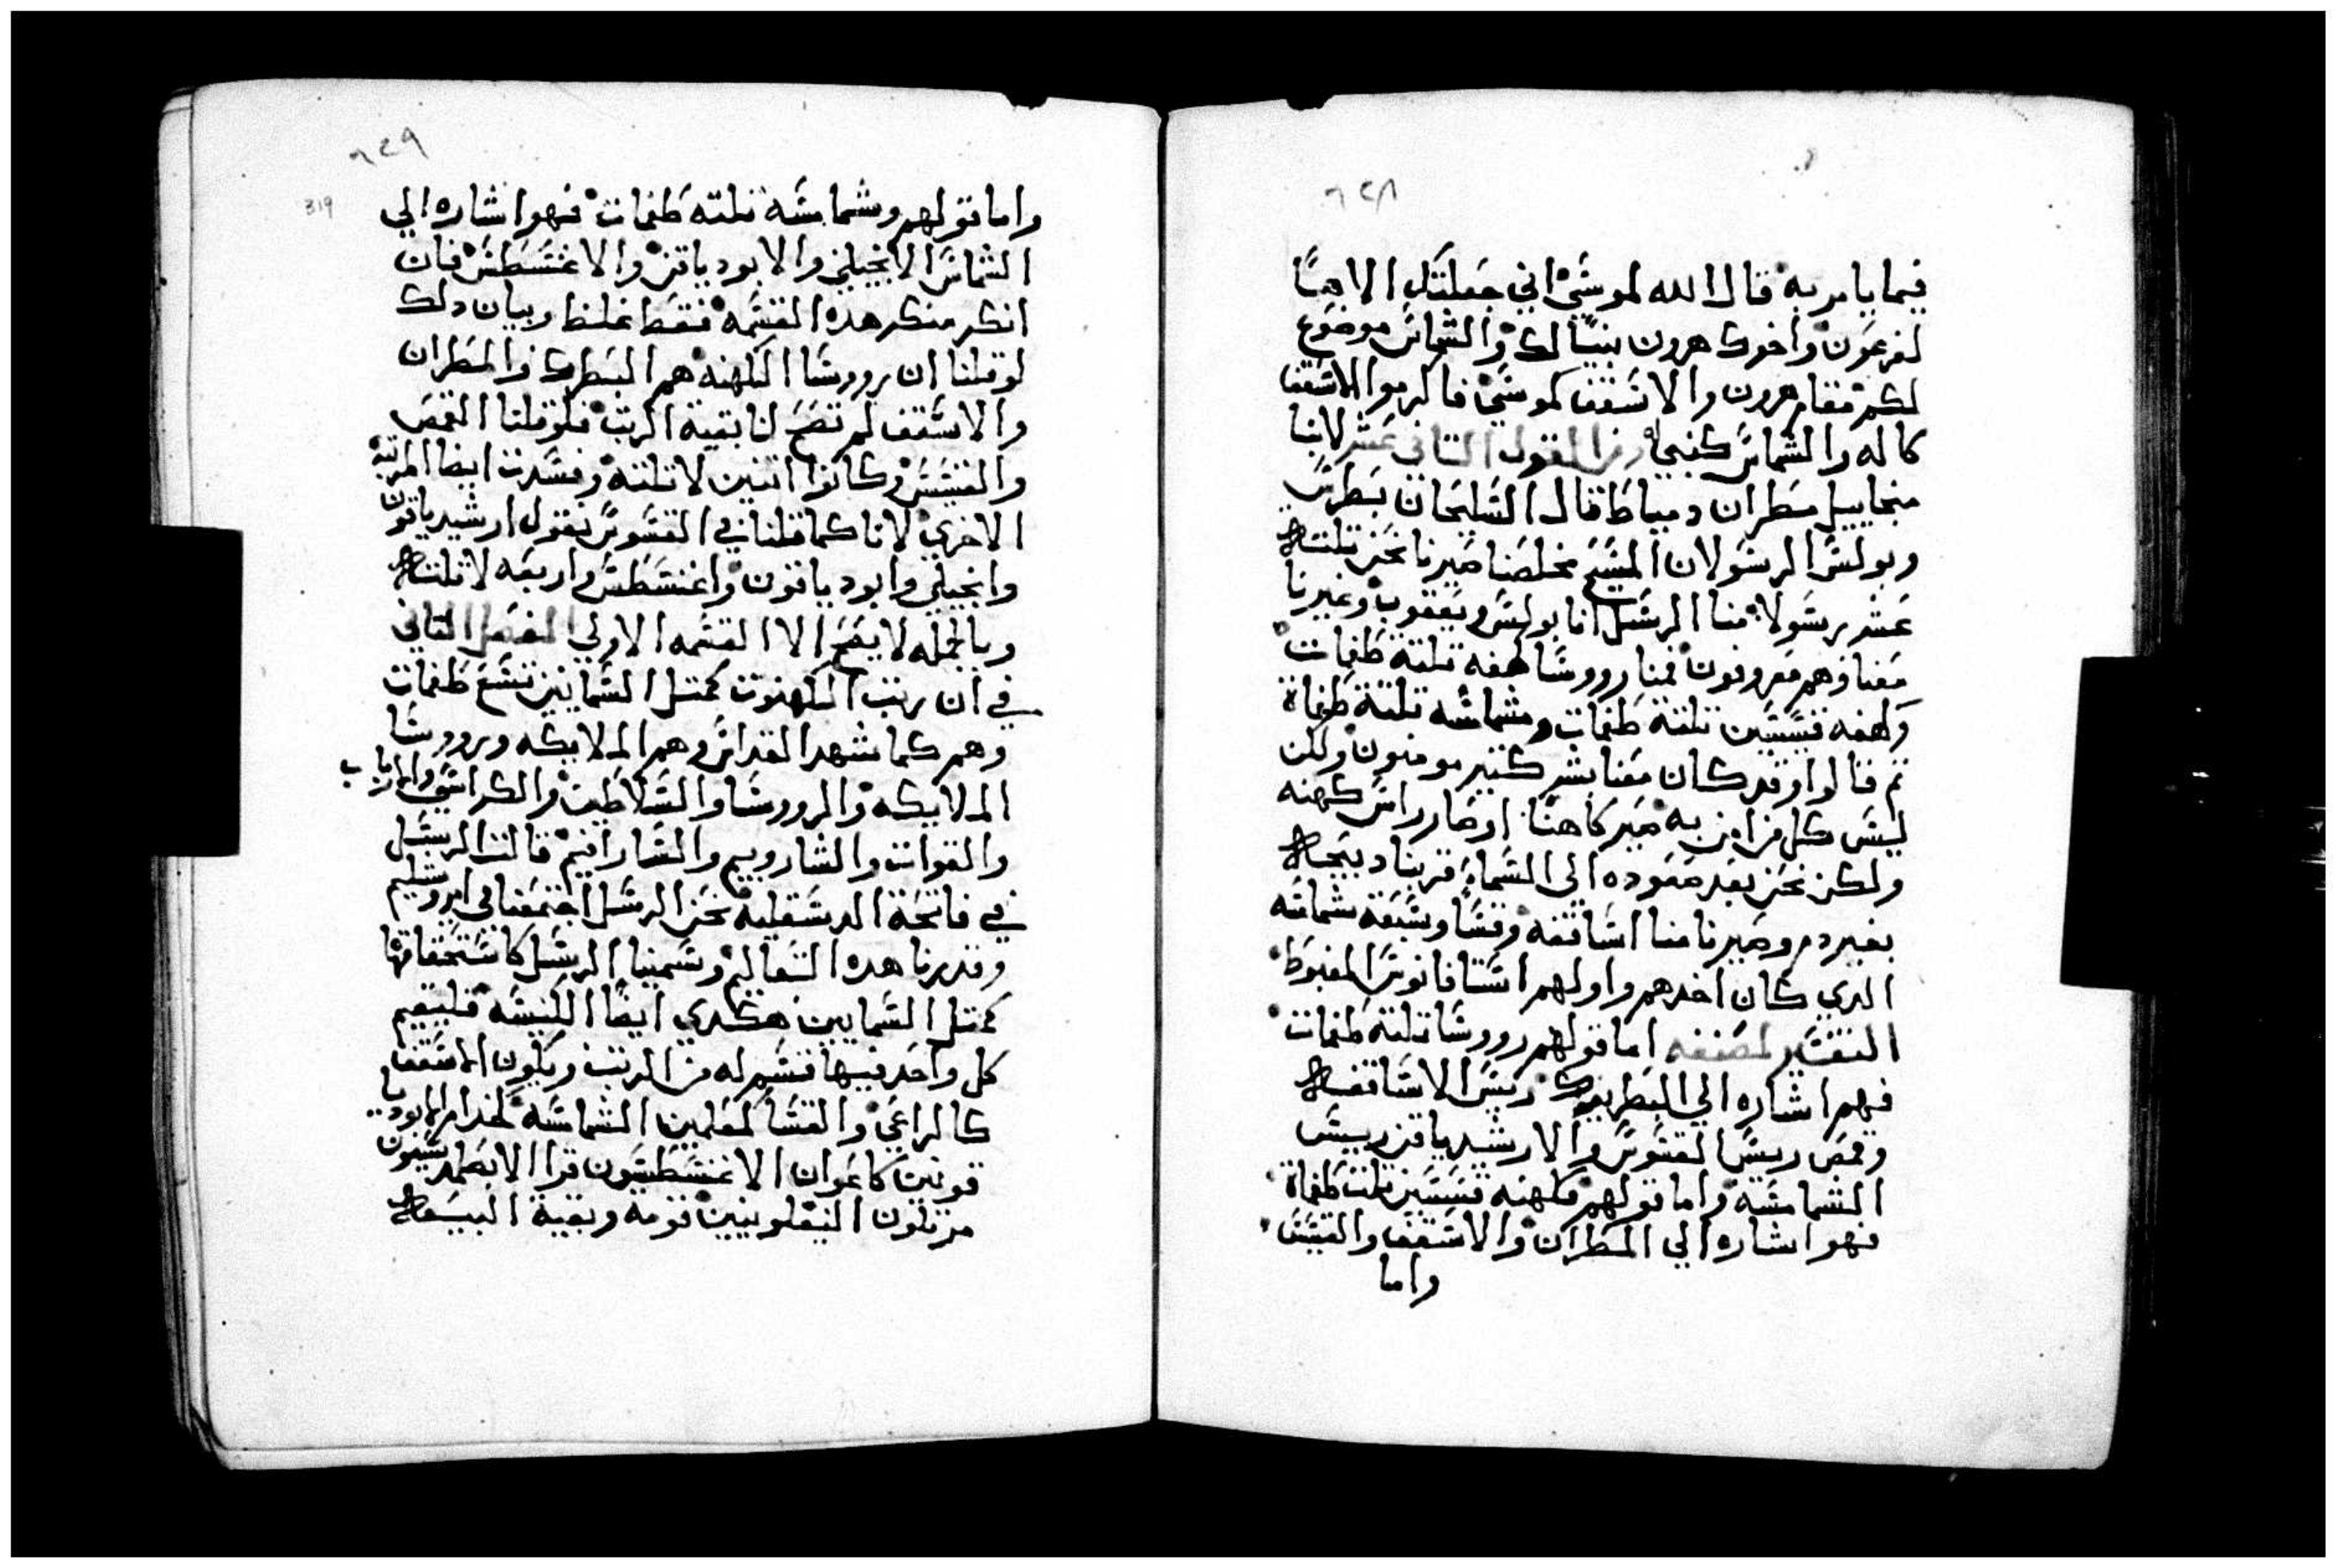 ٦٢٨
فيما يامر به قال الله لموسي اني جعلتك الاهًا
لفرعون واخوك هرون نبيًا لك والشماس موضوع
لكم مقام هرون والاسقف كموسي فالزموا الاسقف
كاله والشماس كنبي القول التاني عشر لانبا
ميخاييل مطران دمياط قال السليحان بطرس
وبولس الرسولان المسيح مخلصنا صيرنا نحن تلته
عشر رسولا منا الرسل انا بولس ويعقوب وغيرنا
معنا وهم معروفون فمنا رووسا كهنه تلتة طغمات
وكهنه قسيسين تلتة طغمات وشمامسه تلتة طغماة
تم قالوا وقد كان معنا بشر كتير مومنون ولكن
ليس كل من امن به صير كاهنًا او صار راس كهنه
ولكن نحن بعد صعوده الي السماء قربنا دبيحه
بغير دم وصيرنا منا اساقفه وقسا وسبعة شمامسه
الدي كان احدهم واولهم استافانوس المغبوط
التفسير لمصنفه اما قولهم رووسا تلتة طغمات
فهم اشاره الي البطريرك ريس الاساقفه
وقمص ريس القسوس والارشيدياقن رييس
الشمامسه واما قولهم وكهنه قسيسين تلت طغماة
فهو اشاره الي المطران والاسقف والقسيس
واما
٦٢٩
319
واما قولهم وشمامسه تلته طغمات فهو اشاره الي
الشماس الانجيلي والابودياقن والاغنسطس فان
انكر منكر هده القسمه فقط غلط وبيان دلك
لو قلنا ان رووسا الكهنه هم البطرك والمطران
والاسقف لم تصح لنا بقية الرتب فلو قلنا القمص
والقسيس كانوا اتنين لا تلتة وفسدت ايضا المرتبه
الاخري لانا كما قلنا في القسوس نقول ارشيدياقون
وانجيلي وابودياقون واغنسطس واربعه لا تلته
وبالجمله لا يصح الا القسمه الاولي الفصل التاني
في ان رتب الكهنوت كمتل السمايين تسع طغمات
وهم كما شهد القداس وهم الملايكه ورووسا
الملايكه والرووسا والسلاطين والكراسي والارباب
والقوات والشاروبيم والسارافيم قالت الرسل
في فاتحة الدسقليه نحن الرسل اجتمعنا في ايروشليم
وقدرنا هده التعاليم وسمينا الرسل كاستحقاقها
كمتل السمايين هكدي ايضًا الكنيسه فليقم
كل واحد فيها قسم له من الرتب ويكون الاسقف
كالراعي والقسا كمعلمين الشمامسه كخدام الابوديا
قونين كاعوان الاغنسطسون قرا الابصلمدسيون
مرتلون النيفلونيين قومه وبقية البيعه